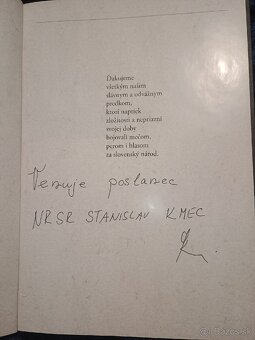 Ďakujeme
všetkým našim
slávnym a odvážnym
predkom,
ktorí napriek
zložitosti a nepriazni
svojej doby
bojovali mečom,
perom i hlasom
za slovenský národ.
Venuje poslanec
NR SR STANISLAV KMEC